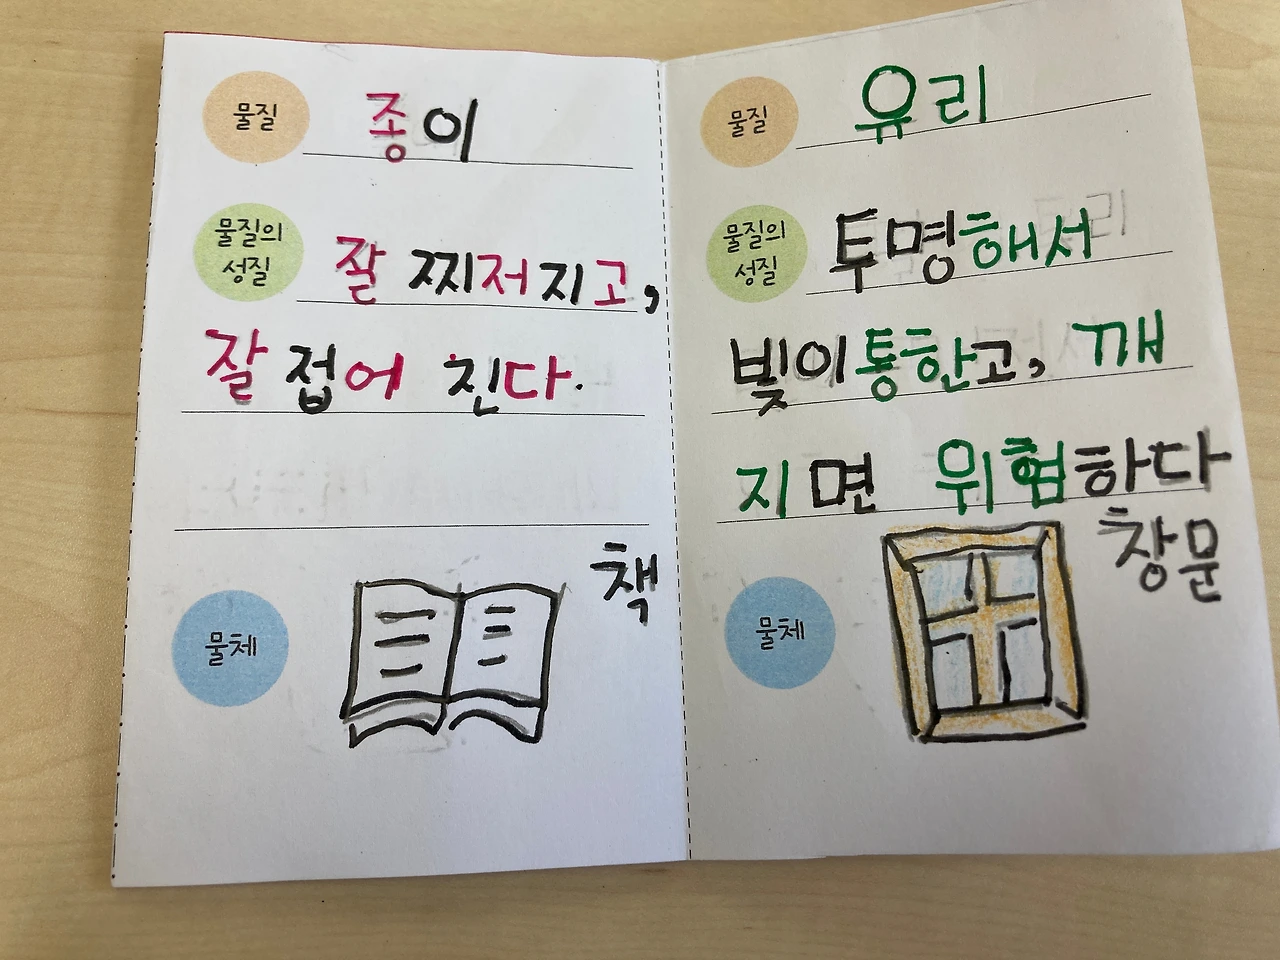 물질 종이
물질의 성질 잘 찌저지고,
잘 접어 진다.
물체 책
물질 유리
물질의 성질 투명해서
빛이통한고, 깨
지면 위험하다
물체 창문